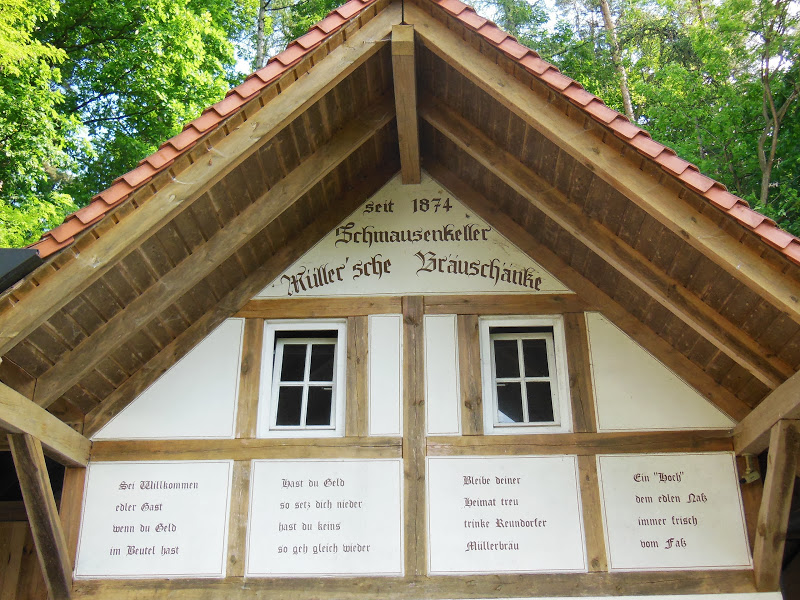 seit 1874
Schmausenkeller
Müller'sche Bräuschänke
Sei Willkommen
edler Gast
wenn du Geld
im Beutel hast
Hast du Geld
so setz dich nieder
hast du keins
so geh gleich wieder
Bleibe deiner
Heimat treu
trinke Reundorfer
Müllerbräu
Ein "Hoch"
dem edlen Naß
immer frisch
vom Faß